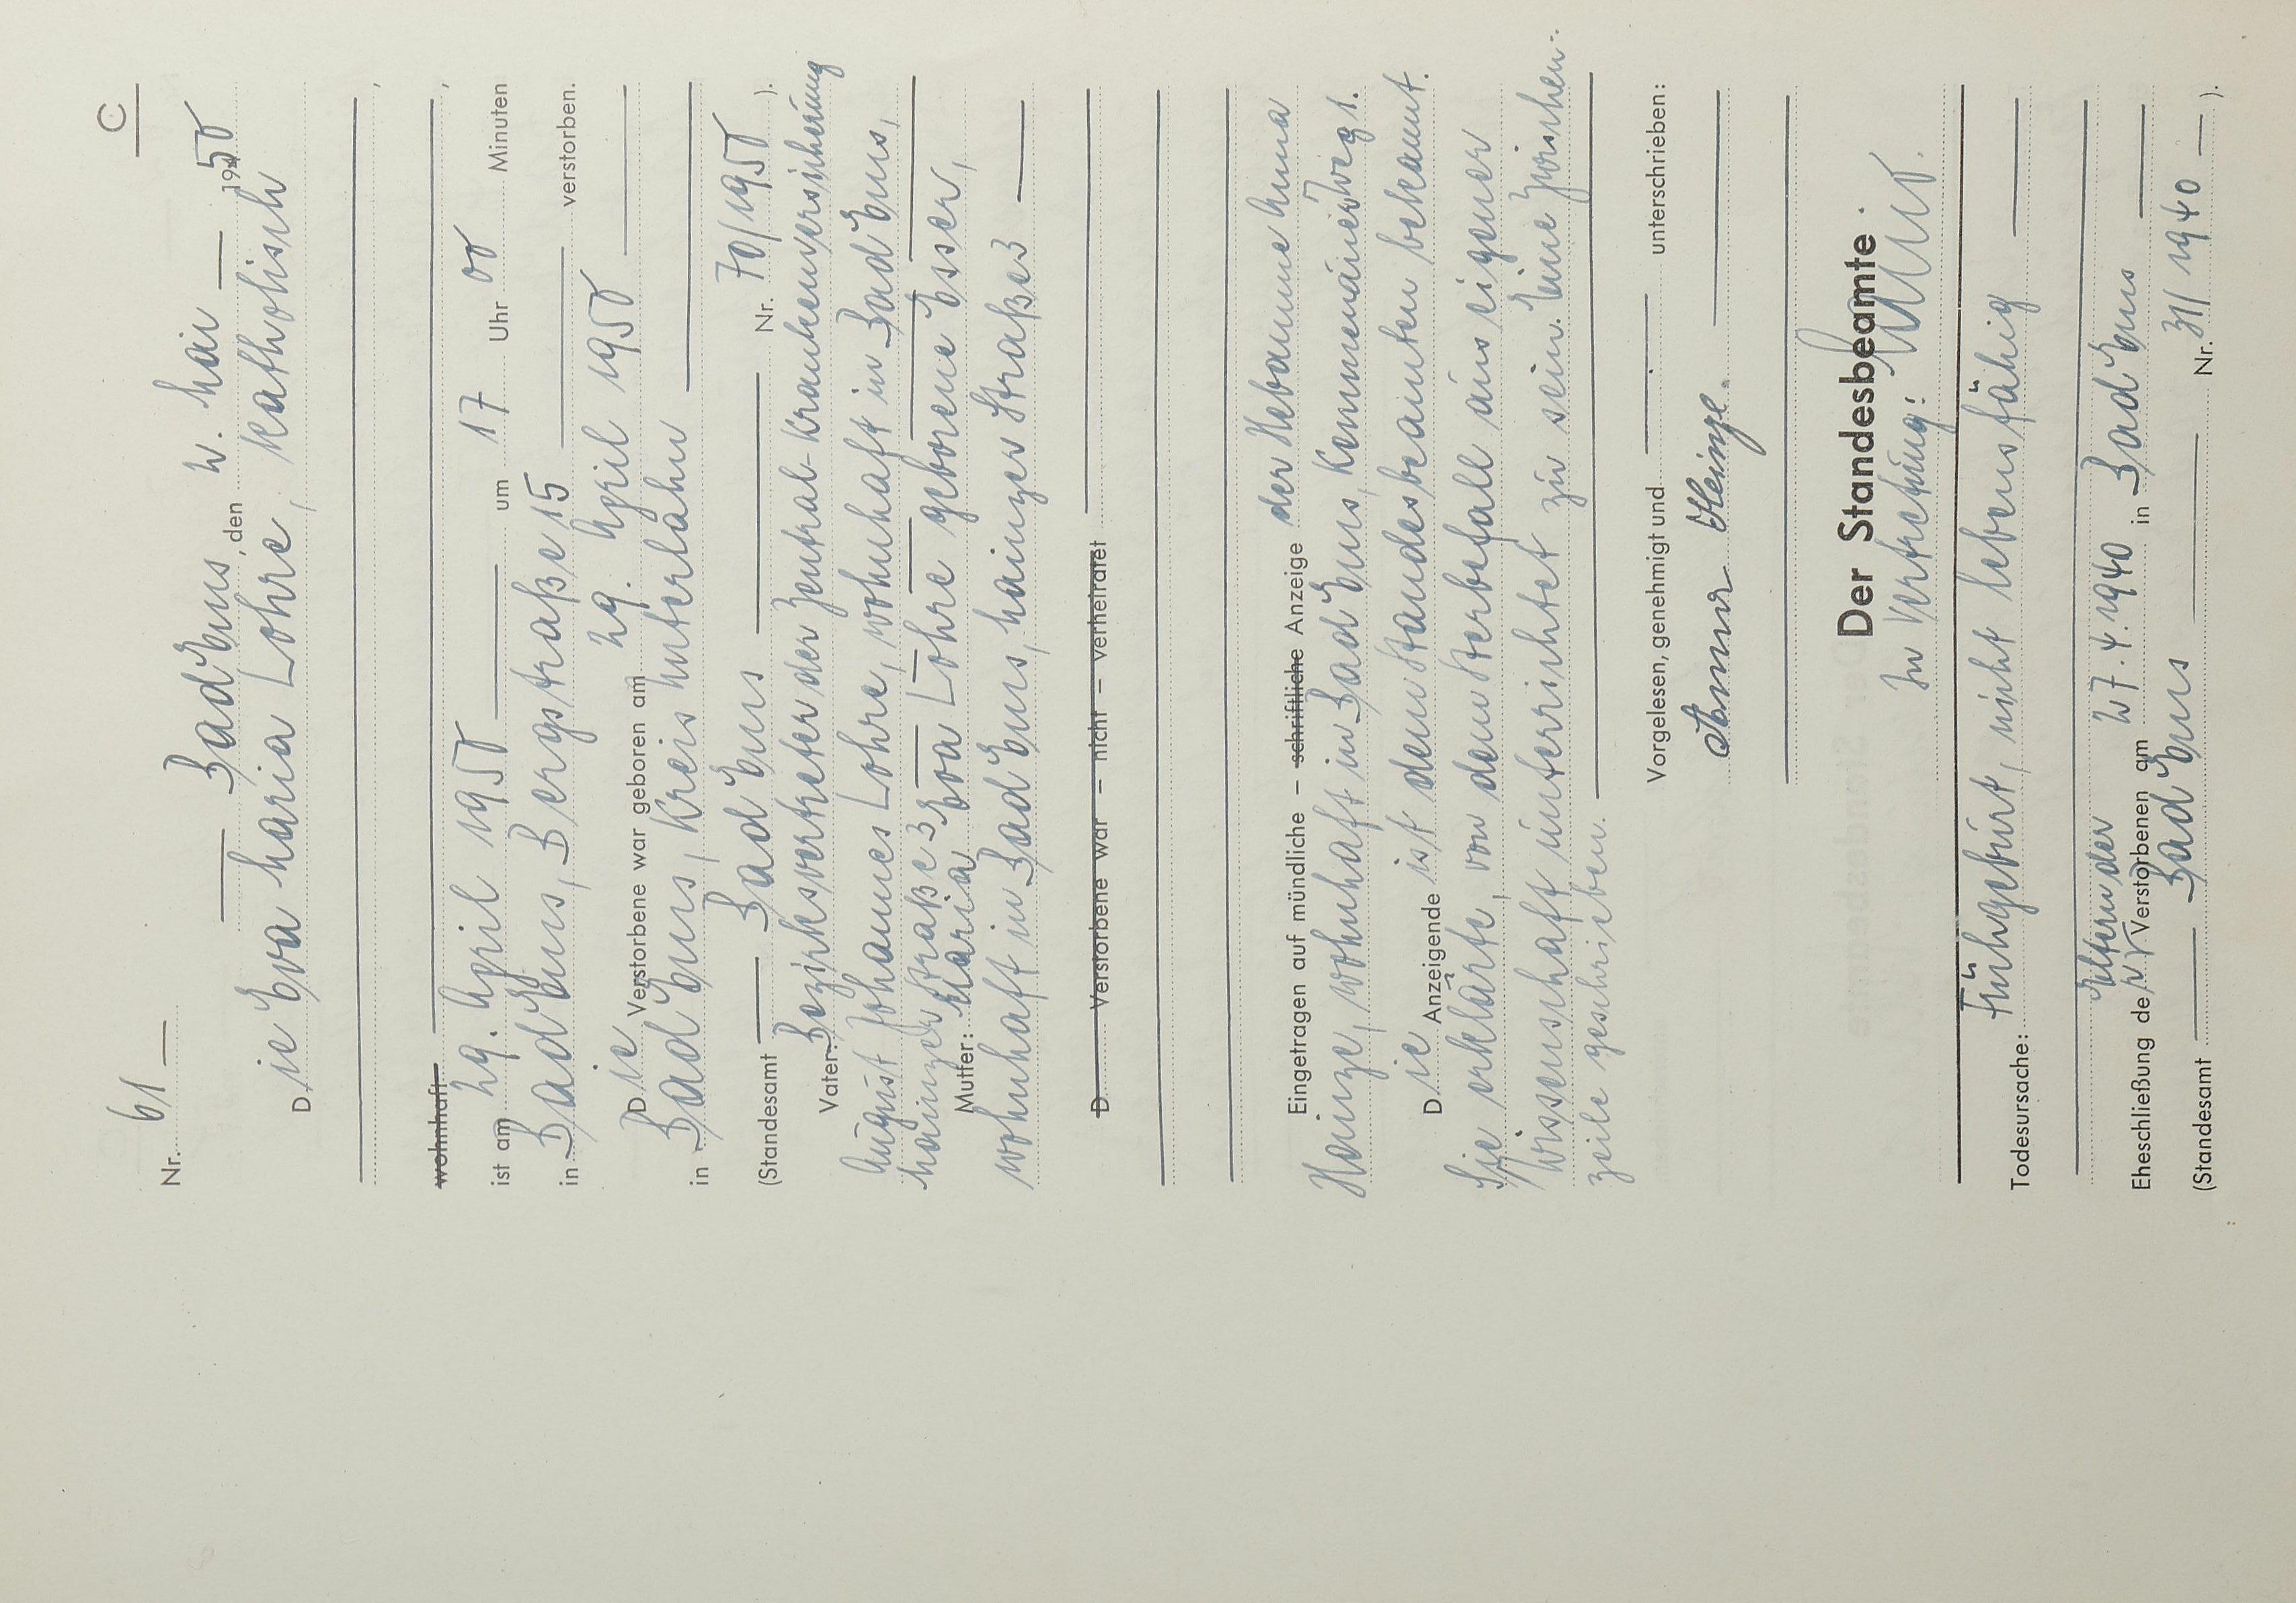 C
Nr. 61 —
— Bad Ems, den 2. Mai — 1950
Die Eva Maria Lohre, katholisch
,
wohnhaft ,
ist am 29. April 1950 — um 17 Uhr 00 Minuten
in Bad Ems, Bergstraße 15 — verstorben.
Die Verstorbene war geboren am 29. April 1950 —
in Bad Ems, Kreis Unterlahn —
(Standesamt — Bad Ems — Nr. 70/1950 ).
Vater: Bezirksvertreter der Zentral-Krankenversicherung
August Johannes Lohre, wohnhaft in Bad Ems,
Mainzer Straße 3
Mutter: Maria Eva Lohre geborene Esser,
wohnhaft in Bad Ems, Mainzer Straße 3 —
D Verstorbene war – nicht – verheiratet
Eingetragen auf mündliche – schriftliche Anzeige der Hebamme Anna
Heinze, wohnhaft in Bad Ems, Kemmenauerweg 1.
Die Anzeigende ist dem Standesbeamten bekannt.
Sie erklärte, von dem Sterbefall aus eigener
Wissenschaft unterrichtet zu sein. Eine Zwischen-
zeile geschrieben.
Vorgelesen, genehmigt und — unterschrieben:
Anna Heinze. —
Der Standesbeamte.
In Vertretung:
Todesursache: Frühgeburt, nicht lebensfähig —
Eltern der
Eheschließung der Verstorbenen am 27.4.1940 in Bad Ems —
(Standesamt — Bad Ems — Nr. 31/1940 — ).